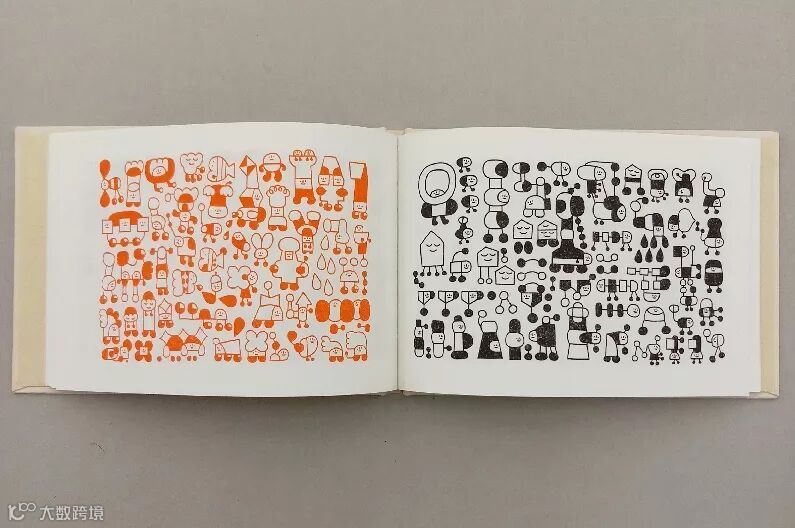 大数跨境